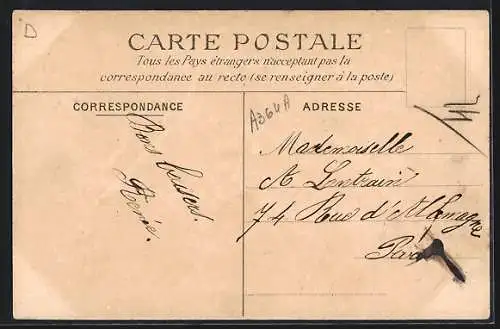 D
CARTE POSTALE
Tous les Pays étrangers n'acceptant pas la
correspondance au recto (se renseigner à la poste)
CORRESPONDANCE
ADRESSE
A364A
Bons baisers.
Renée.
Mademoiselle
A
74 Rue d'Allemagne
Paris